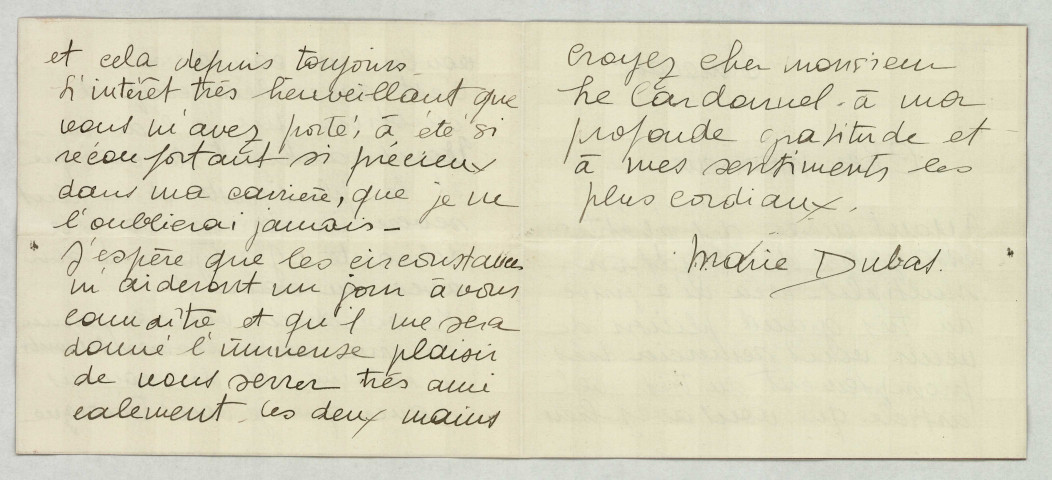 et cela depuis toujours_
L'intérêt très bienveillant que
vous m'avez porté, à été si
réconfortant si précieux
dans ma carrière, que je ne
l'oublierai jamais_
J'espère que les circonstances
m'aideront un jour à vous
connaître et qu'il me sera
donné l'immense plaisir
de vous serrer très ami
calement les deux mains
Croyez cher monsieur
Le Cardonnel - à ma
profonde gratitude et
à mes sentiments les
plus cordiaux.
Marie Dubas.